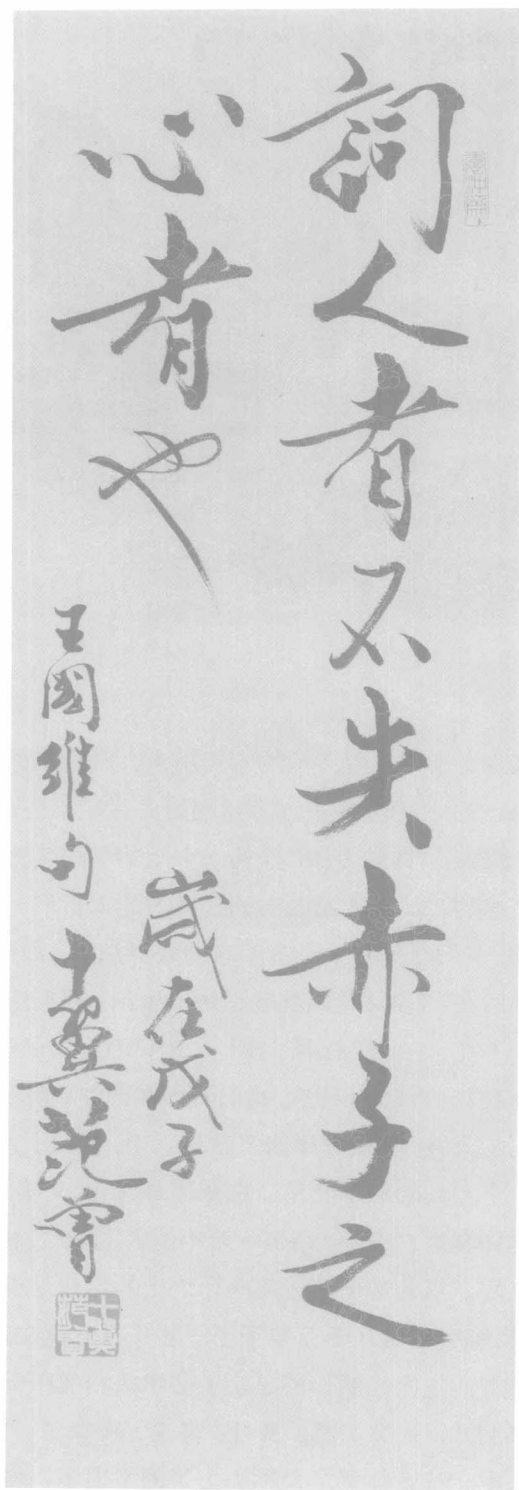 詞人者不失赤子之
心者也
歲在戊子
王國維句十翼范曾
十翼范曾